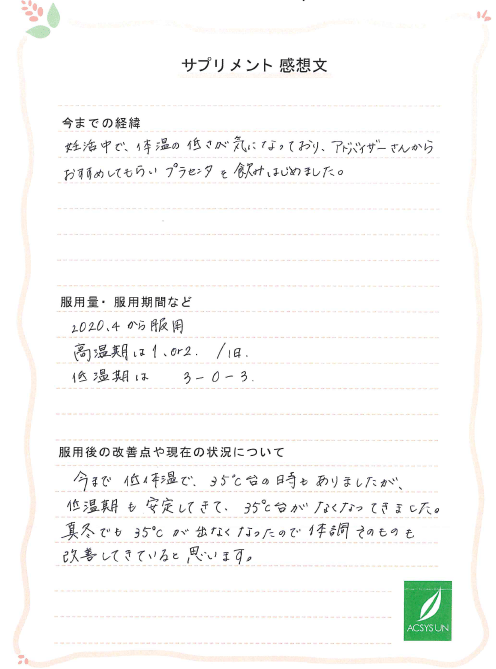 サプリメント 感想文
今までの経緯
妊活中で、体温の低さが気になっており、アドバイザーさんから
おすすめしてもらい プラセンタ を 飲みはじめました。
服用量・服用期間など
2020.4 から服用
高温期は1、or2. /1日.
低温期は 3-0-3.
服用後の改善点や現在の状況について
今まで 低体温で、35℃台の時もありましたが、
低温期も 安定してきて、35℃台がなくなってきました。
真冬でも 35℃ が 出なくなったので 体調そのものも
改善してきていると思います。
ACSYSUN